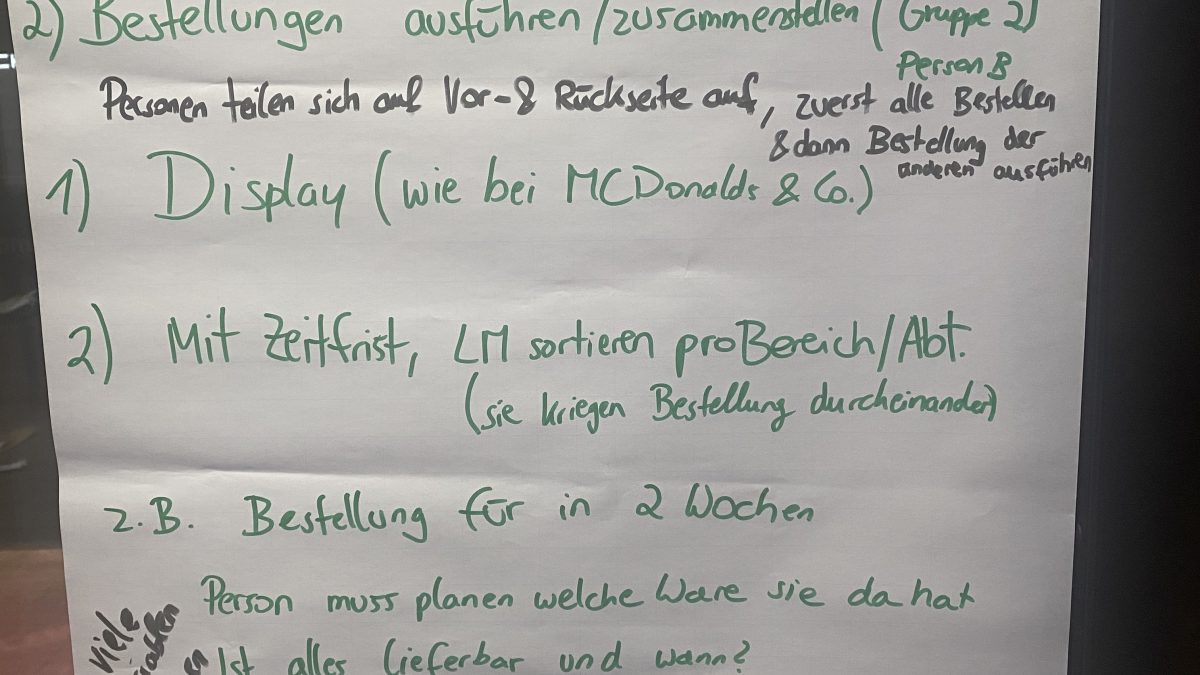 2) Bestellungen ausführen/zusammenstellen (Gruppe 2)
Person B
Personen teilen sich auf Vor-& Rückseite auf, zuerst alle Bestellen
& dann Bestellung der
anderen ausführen
1) Display (wie bei MCDonalds & Co.)
2) Mit Zeitfrist, LM sortieren pro Bereich/Abt.
(sie kriegen Bestellung durcheinander)
z.B. Bestellung für in 2 Wochen
Person muss planen welche Ware sie da hat
Viele
Ist alles lieferbar und wann?